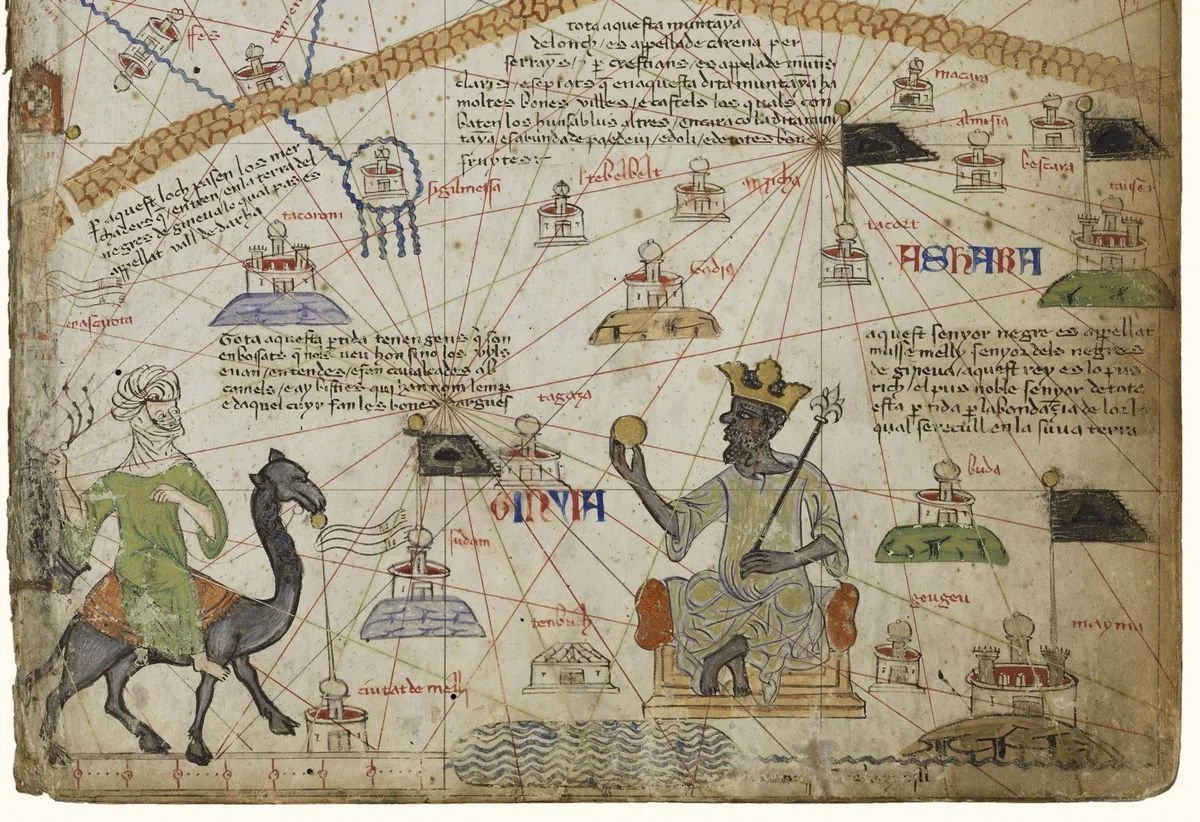 ffes
tota aquesta muntaya
de lonch / es appellade carena per
serrayns / 7 p crestians / es appelade muns
claris / e sepiats q en aquesta dita muntaya ha
moltes bones villes / e castels los quals con
baten los huns ab lus altres / encara co la dita mun
taya es abunda de pa e de vi / e doli / e de totes bones
fruytes
macara
almisia
bescara
P aquest loch pasen los mer
chaders q entren en la terra del
negres de gineua lo qual pas es
appellat vall de darha
sigilmessa
tacoroni
tebelbelt
anzicha
tacort
ASHARA
Tota aquesta ptida tenen gens q son
enbosats q nols veu hom sino los vyls
e uan / en tendes / e fan caualcades ab
camels / e ay bisties qui han nom lemp
e daquel cuyr fan les bones dargues
aquest senyor negre es appellat
musse melly senyor dels negres
de gineua / aquest rey es lo pus
rich / el pus noble senyor de tota
esta ptida p labondazia de lor lo
qual se recull en la suua terra
tagaza
GINYIA
buda
sudam
tenbuch
geugeu
mayma
ciutat de melly